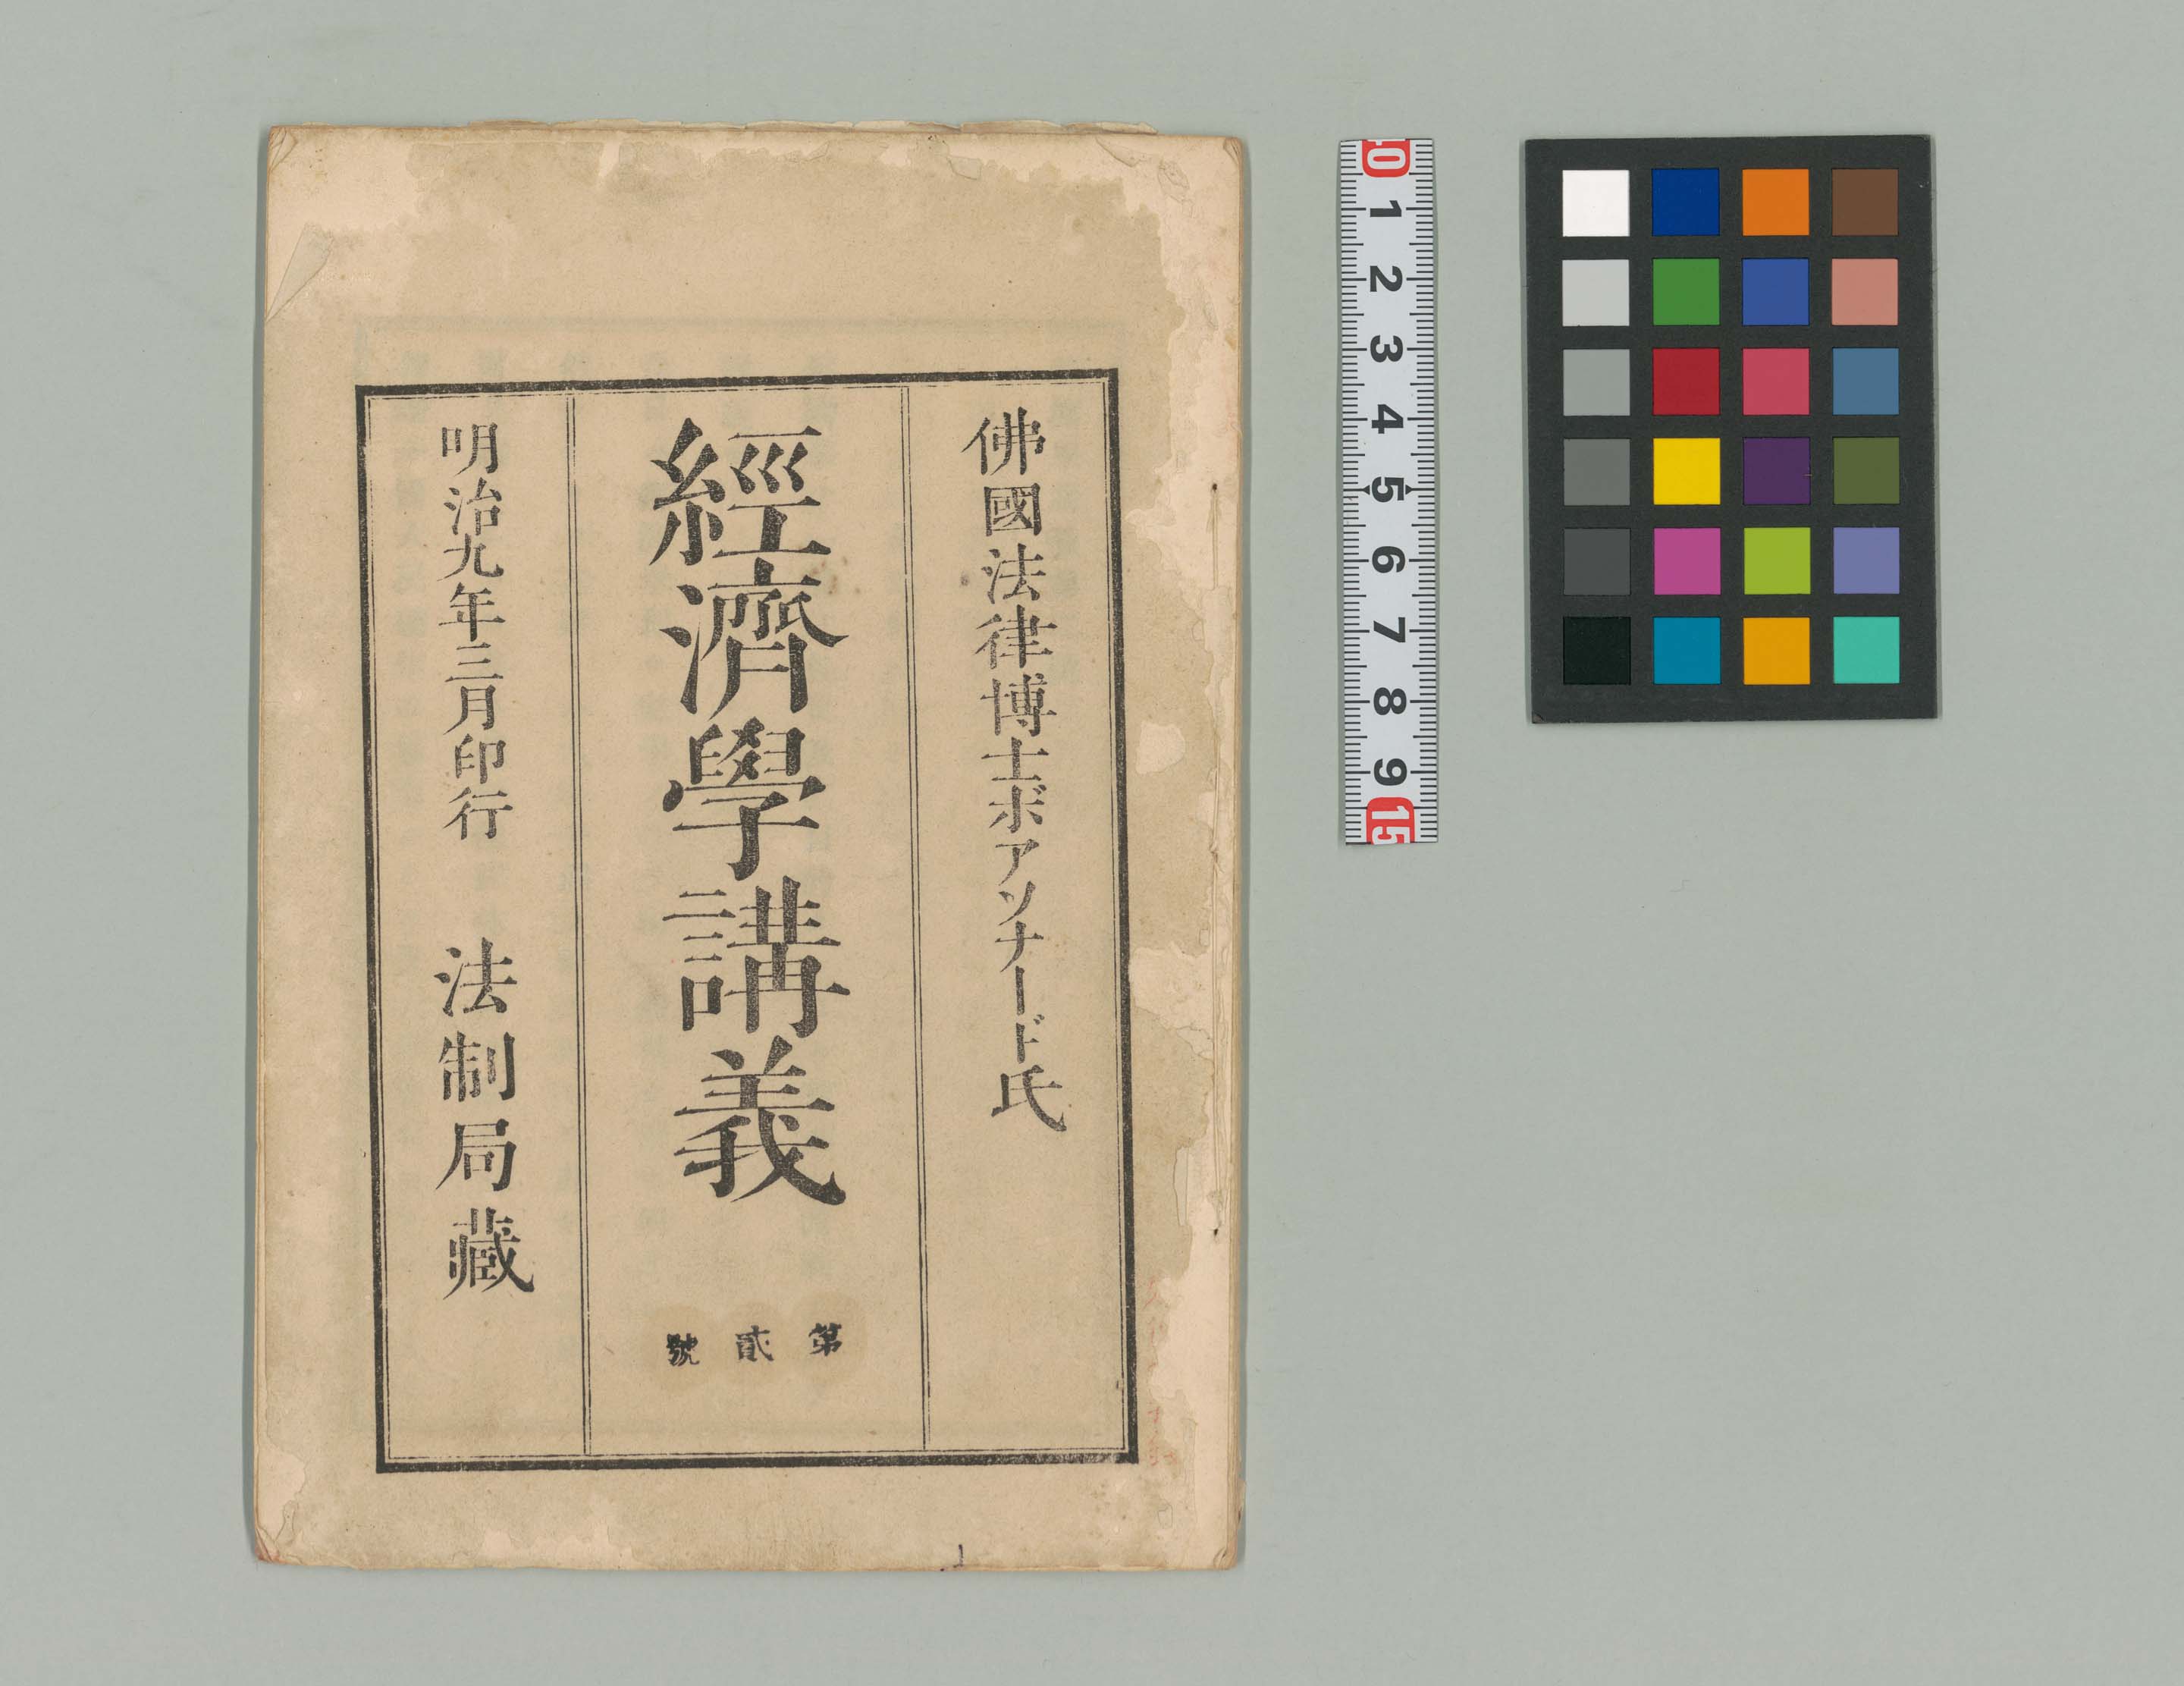 佛國法律博士ボアソナード氏
經濟學講義
第貳號
明治九年三月印行　法制局藏
10
1
2
3
4
5
6
7
8
9
15